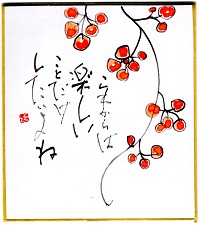 これからは
楽しい
ことだけ
したいよね